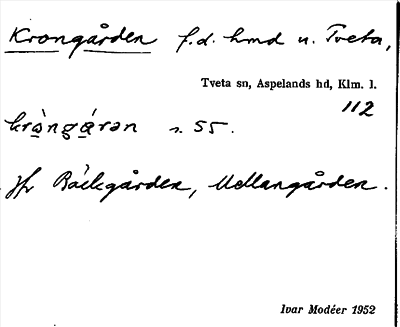 Krongården f.d. hmd u. Tveta,
Tveta sn, Aspelands hd, Klm. l.
112
krò̀ngá̀rən s. 55.
Jfr Backgården, Mellangården.
Ivar Modéer 1952